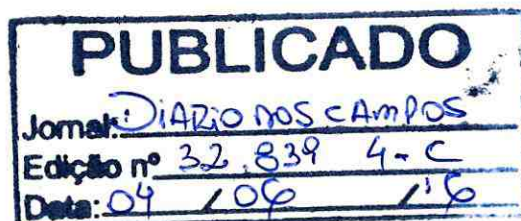 PUBLICADO
Jornal: DiARiO DOS CAMPOS
Edição nº 32.839 4-C
Data: 04 / 06 / 16